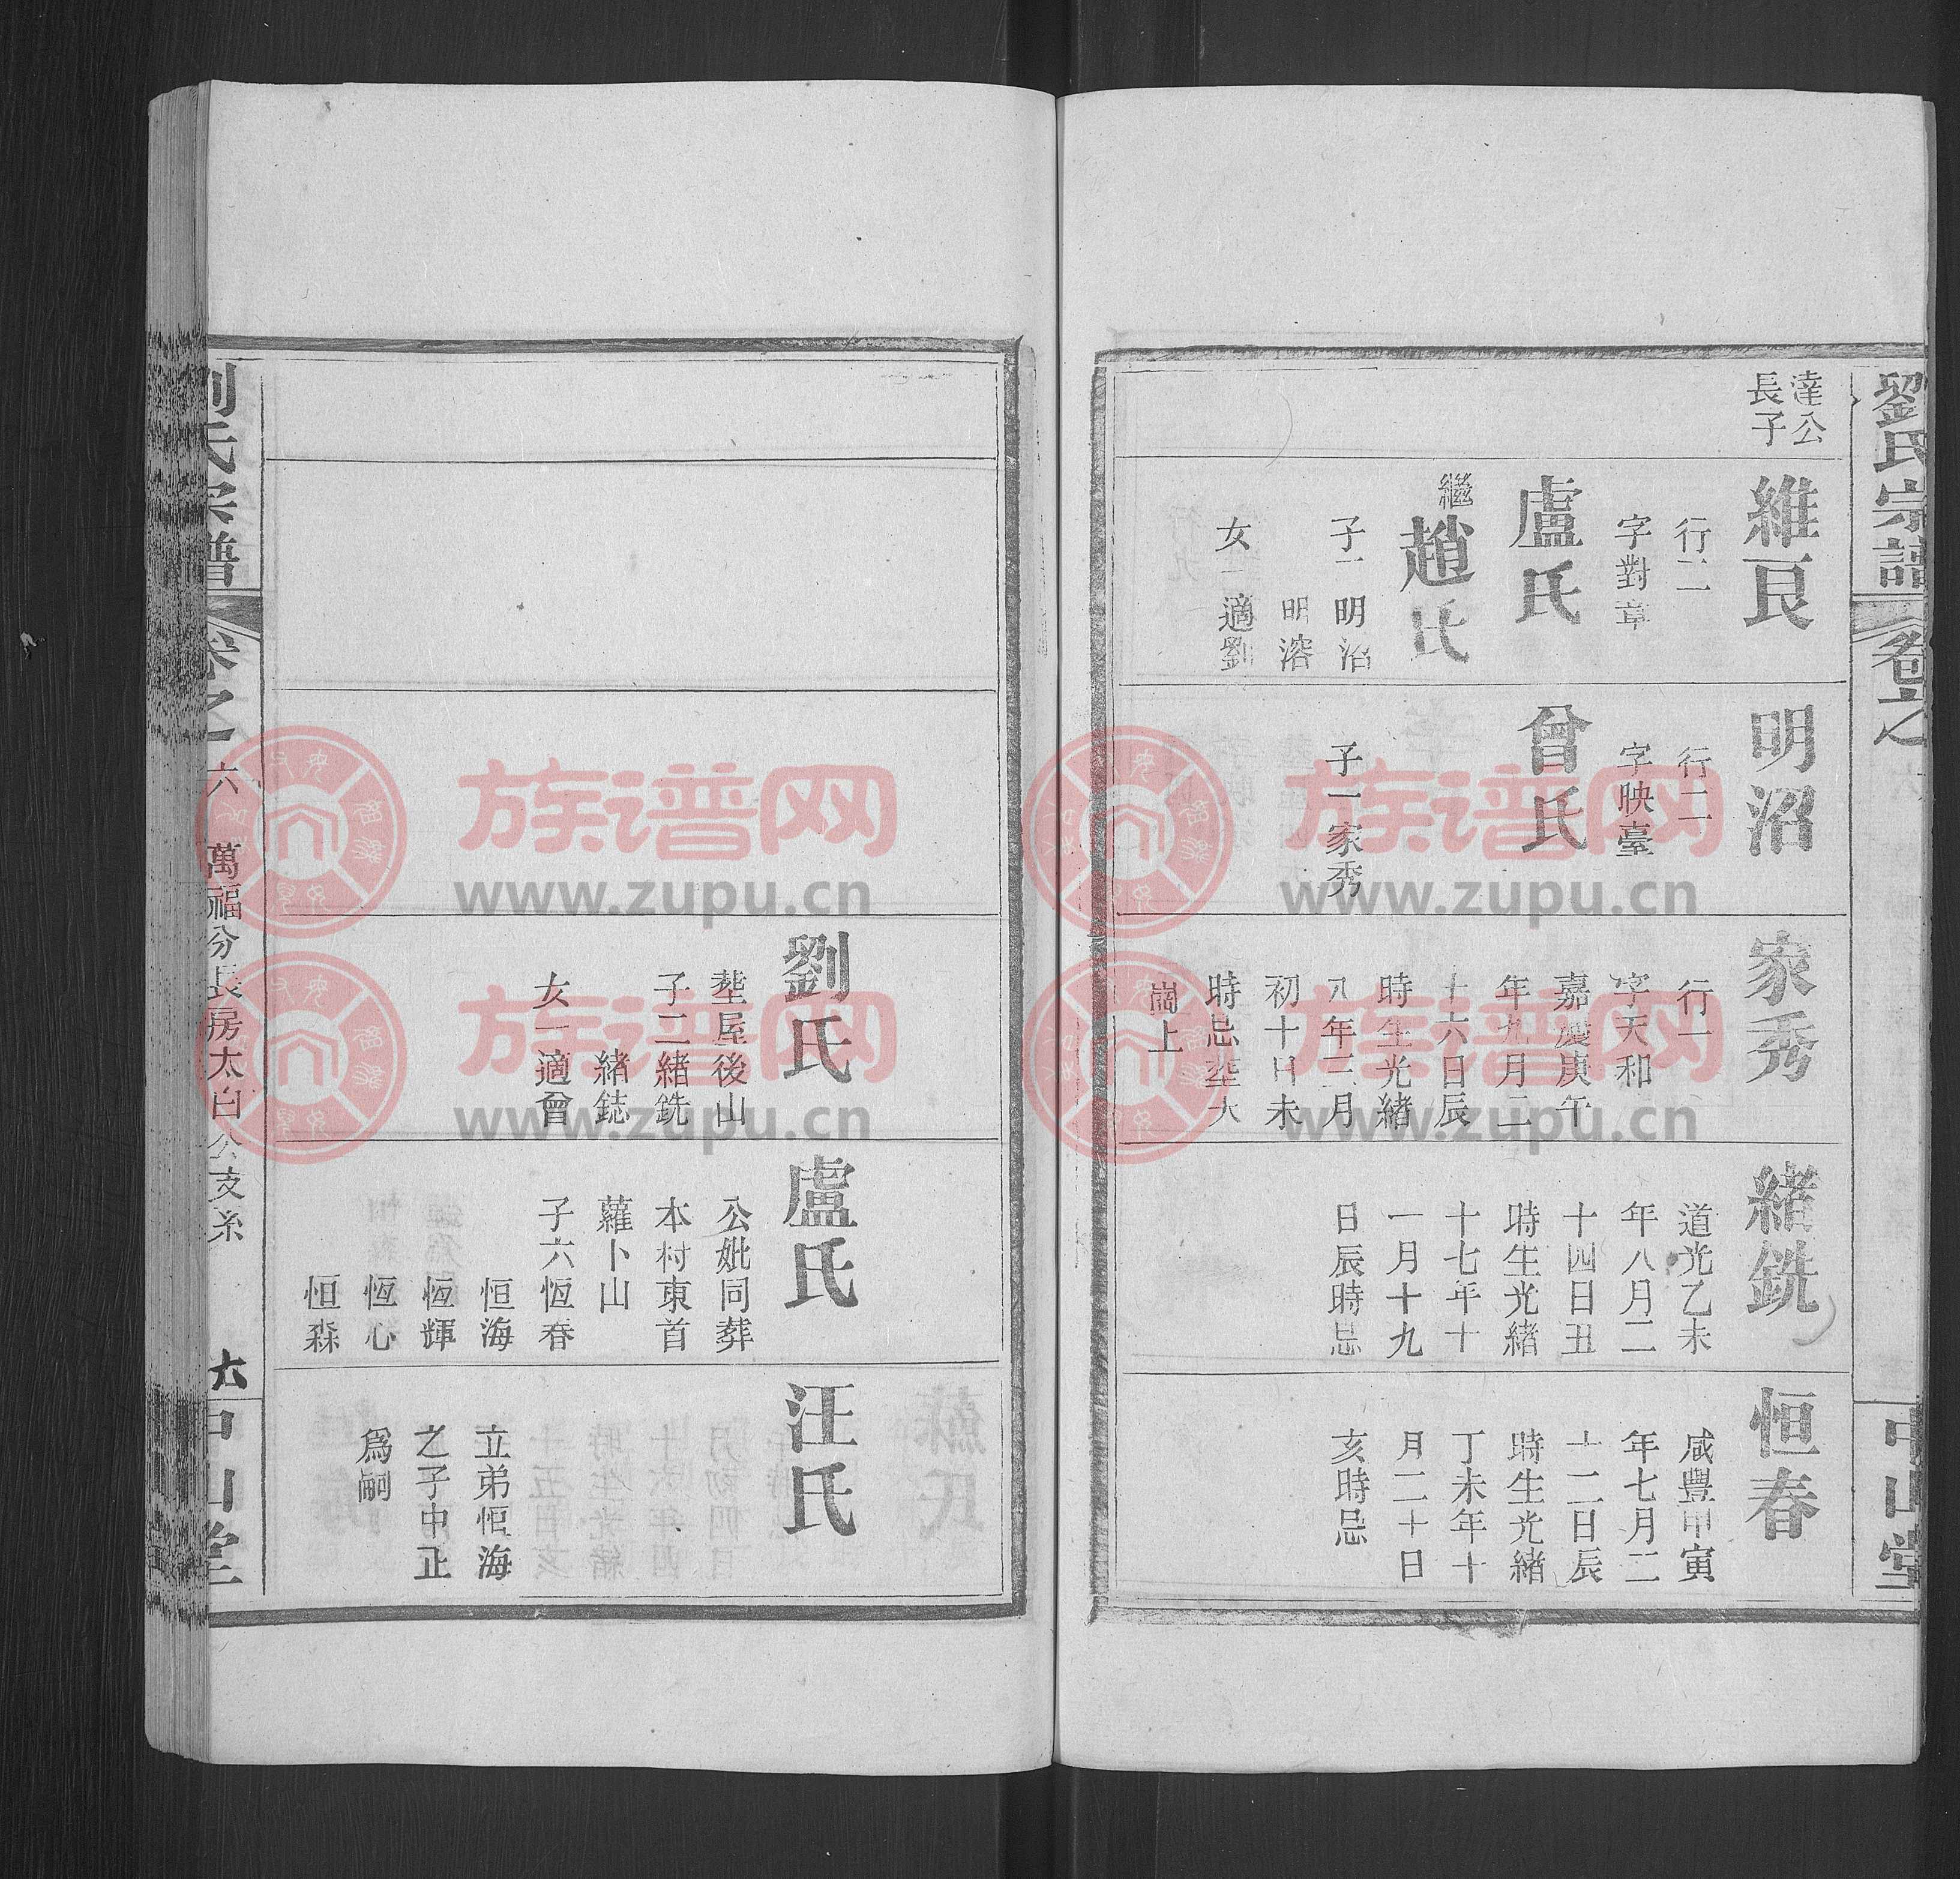 劉氏宗譜
卷之
中山堂
達公
長子
維良
行二
字對章
盧氏
繼趙氏
子一明沼
明溶
女一適劉
明沼
行二
字映臺
曾氏
子一家秀
家秀
行一
字天和
嘉慶庚午
年九月二
十六日辰
時生光緒
八年三月
初十日未
時忌塟大
崗上
緒銑
道光乙未
年八月二
十四日丑
時生光緒
十七年十
一月十九
日辰時忌
恒春
咸豐甲寅
年七月二
十二日辰
時生光緒
丁未年十
月二十日
亥時忌
劉氏
塟屋後山
子二緒銑
緒鋕
女一適曾
盧氏
公妣同葬
本村東首
蘿卜山
子六恆春
恒海
恆輝
恆心
恒森
汪氏
立弟恒海
之子中正
爲嗣
劉氏宗譜
卷之六
萬福分長房太白公支系
六
中山堂
族谱网
www.zupu.cn
族谱网
www.zupu.cn
族谱网
www.zupu.cn
族谱网
www.zupu.cn